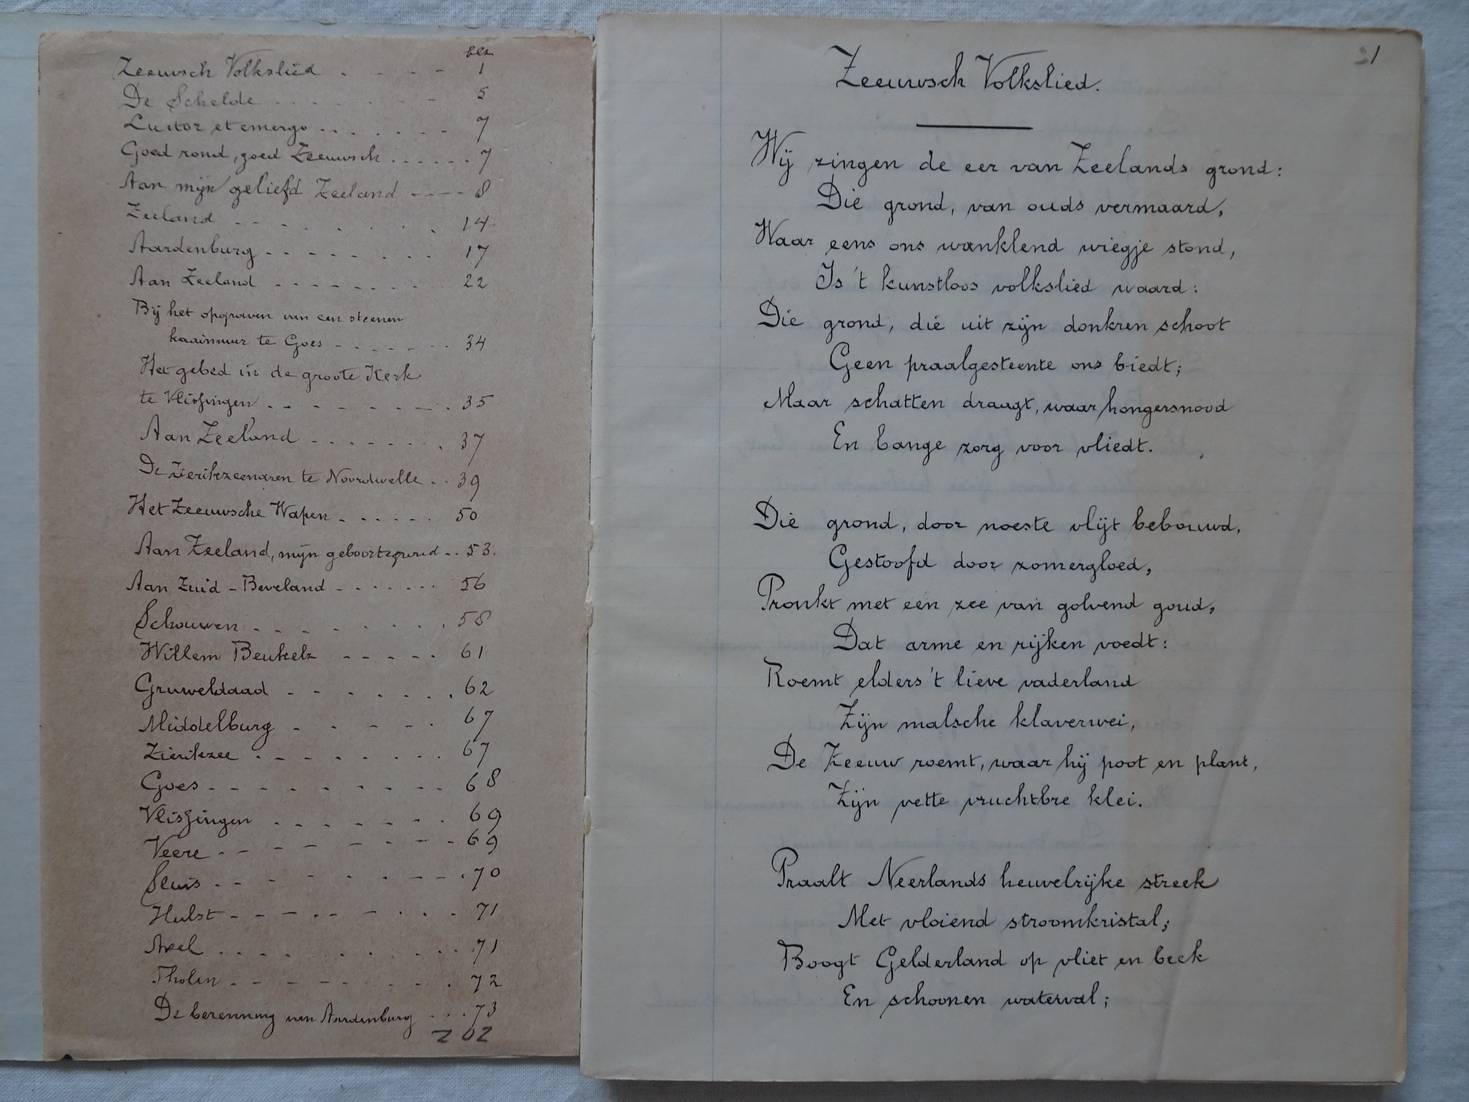 blz
Zeeuwsch Volkslied . - - - - 1
De Schelde . . - - . . - 5
Luctor et emergo . . . . . . . 7
Goed rond, goed Zeeuwsch . . . . . . 7
Aan mijn geliefd Zeeland - - - - 8
Zeeland - - . . . . . 14
Aardenburg . - - - . . . . 17
Aan Zeeland . - - . . . . . 22
Bij het opgraven van een steenen
kaaimuur te Goes - - . . - . . 34
Het gebed in de groote Kerk
te Vlissingen . - - . . . - . 35
Aan Zeeland . . . . . . . 37
De Zierikzeenaren te Noordwelle . . 39
Het Zeeuwsche Wapen . . . . . . 50
Aan Zeeland, mijn geboortegrond - . . 53.
Aan Zuid - Beveland - . . . . . . 56
Schouwen . - - . . . . . 58
Willem Beukelz - - - . . 61
Gruweldaad - - . . . . . 62
Middelburg - . - - . 67
Zierikzee . - . . . . . . 67
Goes - . . - . . . . . 68
Vlissingen . - . . . . . 69
Veere - - - . . . - - 69
Sluis . - - . . . - - . 70
Hulst - - - . . - . . . 71
Axel . . . . . . . . . . 71
Tholen - - . - . . . . . 72
De berenning van Aardenburg . . . 73
202
21
Zeeuwsch Volkslied.
Wij zingen de eer van Zeelands grond:
Die grond, van ouds vermaard,
Waar eens ons wanklend wiegje stond,
Is 't kunstloos volkslied waard:
Die grond, die uit zijn donkren schoot
Geen praalgesteente ons biedt;
Maar schatten draagt, waar hongersnood
En bange zorg voor vliedt.
Die grond, door noeste vlijt bebouwd,
Gestoofd door zomergloed,
Pronkt met een zee van golvend goud,
Dat arme en rijken voedt:
Roemt elders 't lieve vaderland
Zijn malsche klaverwei,
De Zeeuw roemt, waar hij poot en plant,
Zijn vette vruchtbre klei.
Praalt Neerlands heuvelrijke streek
Met vloiend stroomkristal;
Boogt Gelderland op vliet en beek
En schoonen waterval;